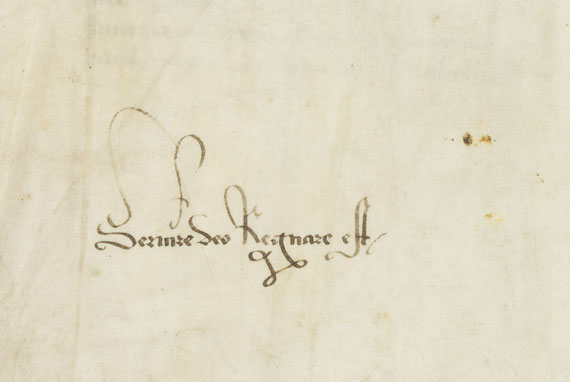 Seruire deo Regnare est